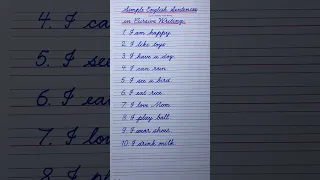 Simple English Sentences
in Cursive Writing
1. I am happy
2. I like toys
3. I have a dog.
4. I can run
5. I see a bird.
6. I eat rice.
7. I love Mom.
8. I play ball.
9. I wear shoes.
10. I drink milk.
4. I can
5. I see
6. I ea
7. I lo
8. I pla